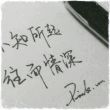 不知所起
往而情深